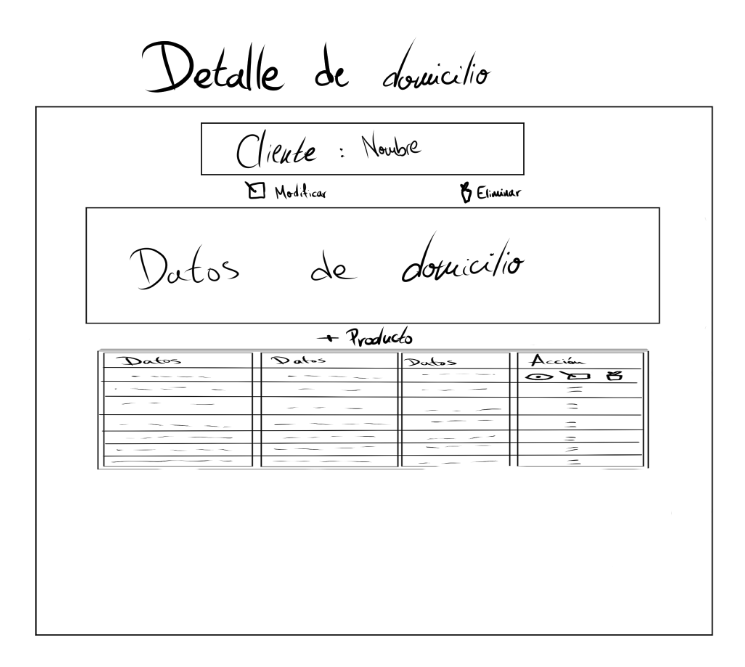 Detalle de domicilio
Cliente : Nombre
Modificar Eliminar
Datos de domicilio
+ Producto
Datos Datos Datos Acción